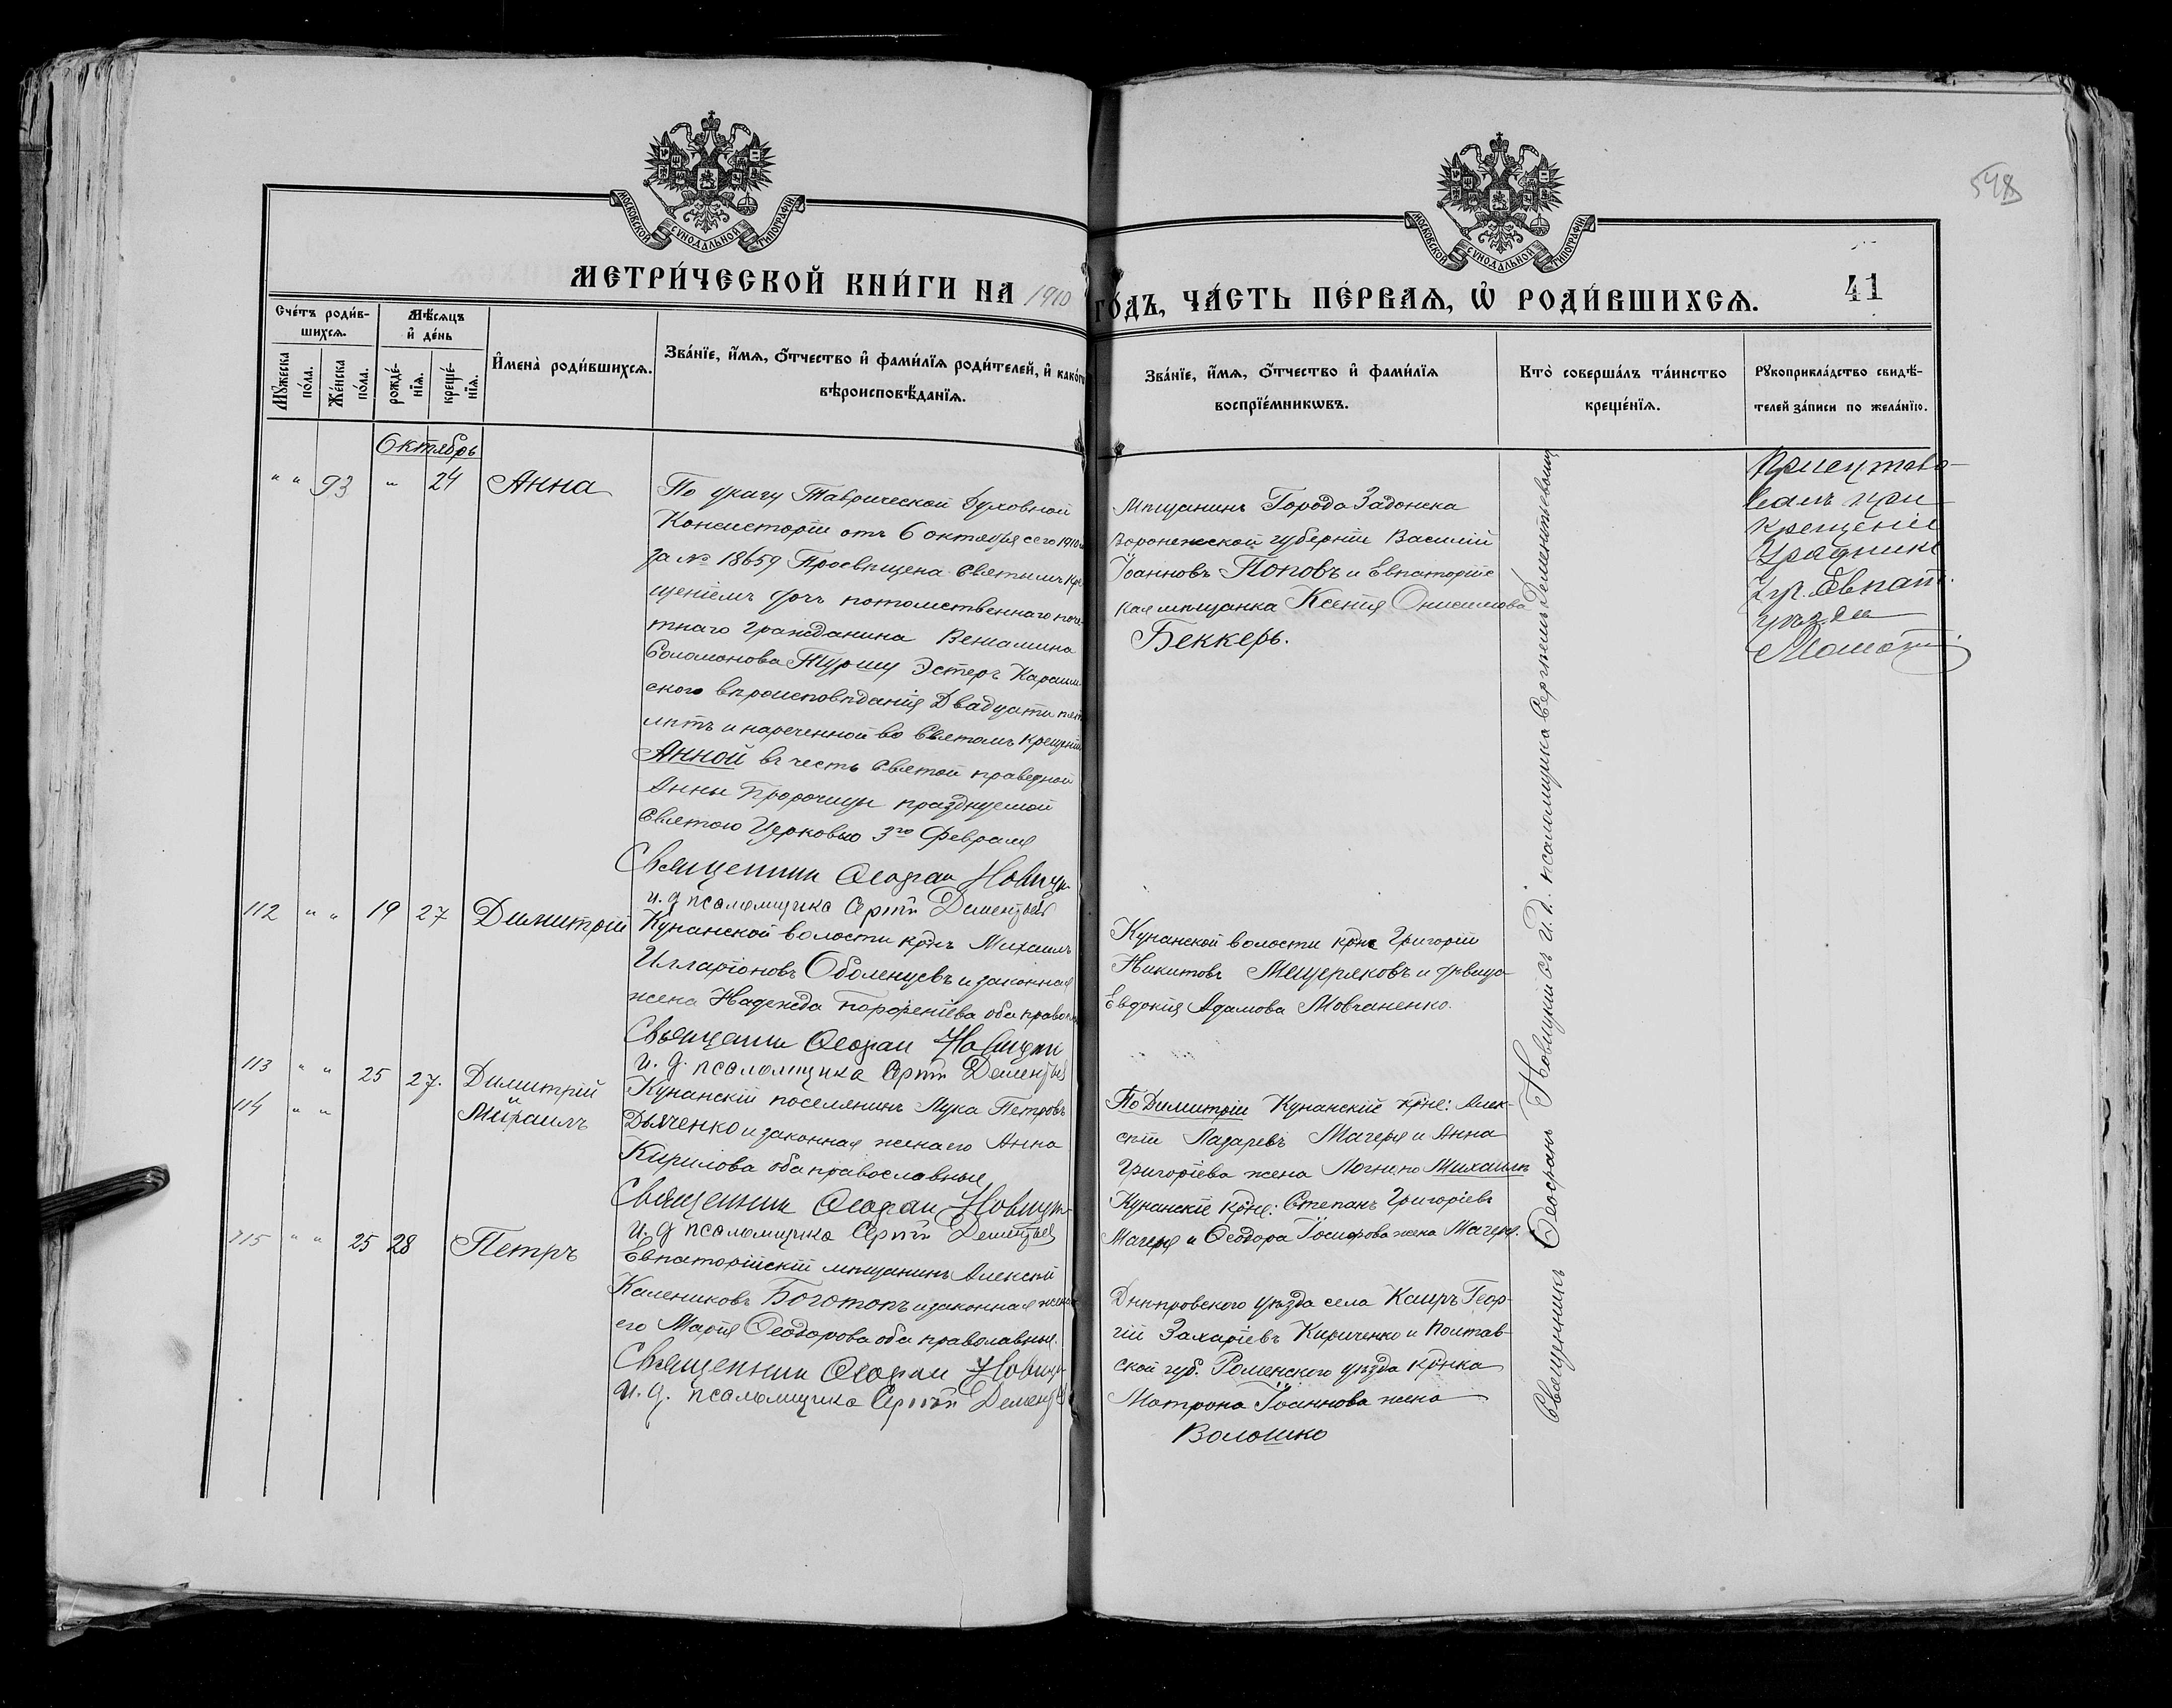 548
МОСКОВСКОЙ СѴНОДАЛЬНОЙ ТИПОГРАФІИ
МОСКОВСКОЙ СѴНОДАЛЬНОЙ ТИПОГРАФІИ
МЕТРИ́ЧЕСКОЙ КНИ́ГИ НА 1910
ГО́ДЪ, ЧА́СТЬ ПЕ́РВАѦ, Ѡ҆ РОДИ́ВШИХСѦ.
41
Сче́тъ роди́в-
шихсѧ.
Мꙋжеска по́ла.
Же́нска по́ла.
Мѣ́сѧцъ
и҆ де́нь
рожде́-нїѧ.
креще́-нїѧ.
И҆мена̀ роди́вшихсѧ.
Зва́нїе, и҆́мѧ, ѻ҆́тчество и҆ фами́лїѧ роди́телей, и҆ како́гѡ
вѣроисповѣ́данїѧ.
Зва́нїе, и҆́мѧ, ѻ҆́тчество и҆ фами́лїѧ
воспрїе́мникѡвъ.
Кто̀ соверша́лъ та́инство
креще́нїѧ.
Рꙋкоприкла́дство свидѣ́-
телей за́писи по жела́нїю.
Октябрь
" " 93 " 24 Анна
По указу Таврической Духовной
Консисторіи отъ 6 октября сего 1910 г
за № 18659 Просвѣщена Святымъ Кре
щеніемъ дочь потомственнаго поче-
тнаго Гражданина Веніамина
Соломонова Туршу Эстеръ Караим
скаго вѣроисповѣданія Двадцати пяти
лѣтъ и нареченной во Святомъ Крещеніи
Анной въ честь Святой праведной
Анны Пророчицы празднуемой
Святою Церковью 3го Февраля
Священникъ Ѳеофанъ Новицкій
и. д. псаломщика Сергѣй Дементьевъ
Мѣщанинъ Города Задонска
Воронежской губерніи Василій
Іоанновъ Поповъ и Евпаторійс
кая мѣщанка Ксенія Онисимова
Беккеръ.
Присутство-
валъ при
Крещеніи
Урядникъ
Евпат.
уѣзда
112 " " 19 27 Димитрій
Кунанской волости крнъ Михаилъ
Илларіоновъ Оболенцевъ и законная
жена Надежда Порфиріева оба правосл
Священникъ Ѳеофанъ Новицкій
и. д. псаломщика Сергѣй Дементьевъ
Кунанской волости крне Григорій
Никитовъ Мещеряковъ и дѣвица
Евдокія Адамова Мовчаненко.
113 " " 25 27. Димитрій
114 " " и Михаилъ
Кунанскій поселянинъ Лука Петровъ
Дьяченко и законная жена его Анна
Кирилова оба православные
Священникъ Ѳеофанъ Новицкій
и. д. псаломщика Сергѣй Дементьевъ
По Димитріи Кунанскіе крне: Алек-
сѣй Лазаревъ Магеря и Анна
Григоріева жена по Михаилѣ
Кунанскіе крне: Степанъ Григоріевъ
Магеря и Ѳеодора Іосифова жена Магеря.
115 " " 25 28 Петръ
Евпаторійскій мѣщанинъ Алексѣй
Калениковъ Боготопъ и законная жена
его Марія Ѳеодорова оба православные.
Священникъ Ѳеофанъ Новицкій
и. д. псаломщика Сергѣй Дементьевъ
Днѣпровского уѣзда села Каиръ Геор-
гій Захаріевъ Кириченко и Полтав-
ской губ. Роменского уѣзда крнка
Матрона Іоаннова жена
Волошко
Священникъ Ѳеофанъ Новицкій съ и. д. псаломщика Сергѣемъ Дементьевымъ